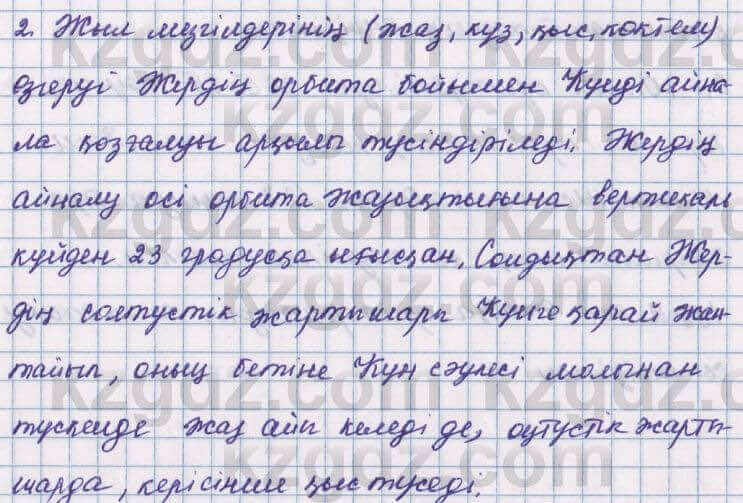 2. Жыл мезгілдерінің (жаз, күз, қыс, көктем)
өзгеруі Жердің орбита бойымен Күнді айна-
ла қозғалуы арқылы түсіндіріледі. Жердің
айналу осі орбита жазықтығына вертикаль
күйден 23 градусқа ығысқан, Сондықтан Жер-
дің солтүстік жартышары Күнге қарай жан-
тайып, оның бетіне Күн сәулесі молынан
түскенде жаз айы келеді де, оңтүстік жарты-
шарда, керісінше қыс түседі.
kzgdz.com